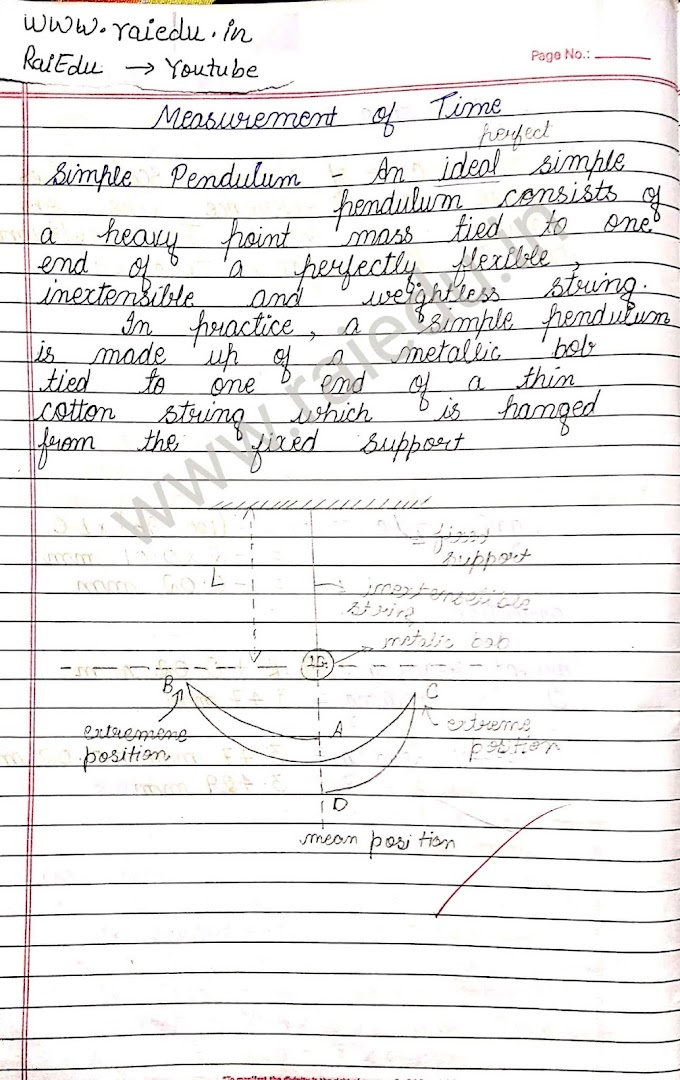 www.raiedu.in
RaiEdu → Youtube
Page No.:
Measurement of Time
perfect
Simple Pendulum - An ideal simple
pendulum consists of
a heavy point mass tied to one
end of a perfectly flexible,
inextensible and weightless string.
In practice, a simple pendulum
is made up of a metallic bob
tied to one end of a thin
cotton string which is hanged
from the fixed support
support
L
string
metalic bob
B
C
extremene
position
A
extreme
position
D
mean position
www.raiedu.in